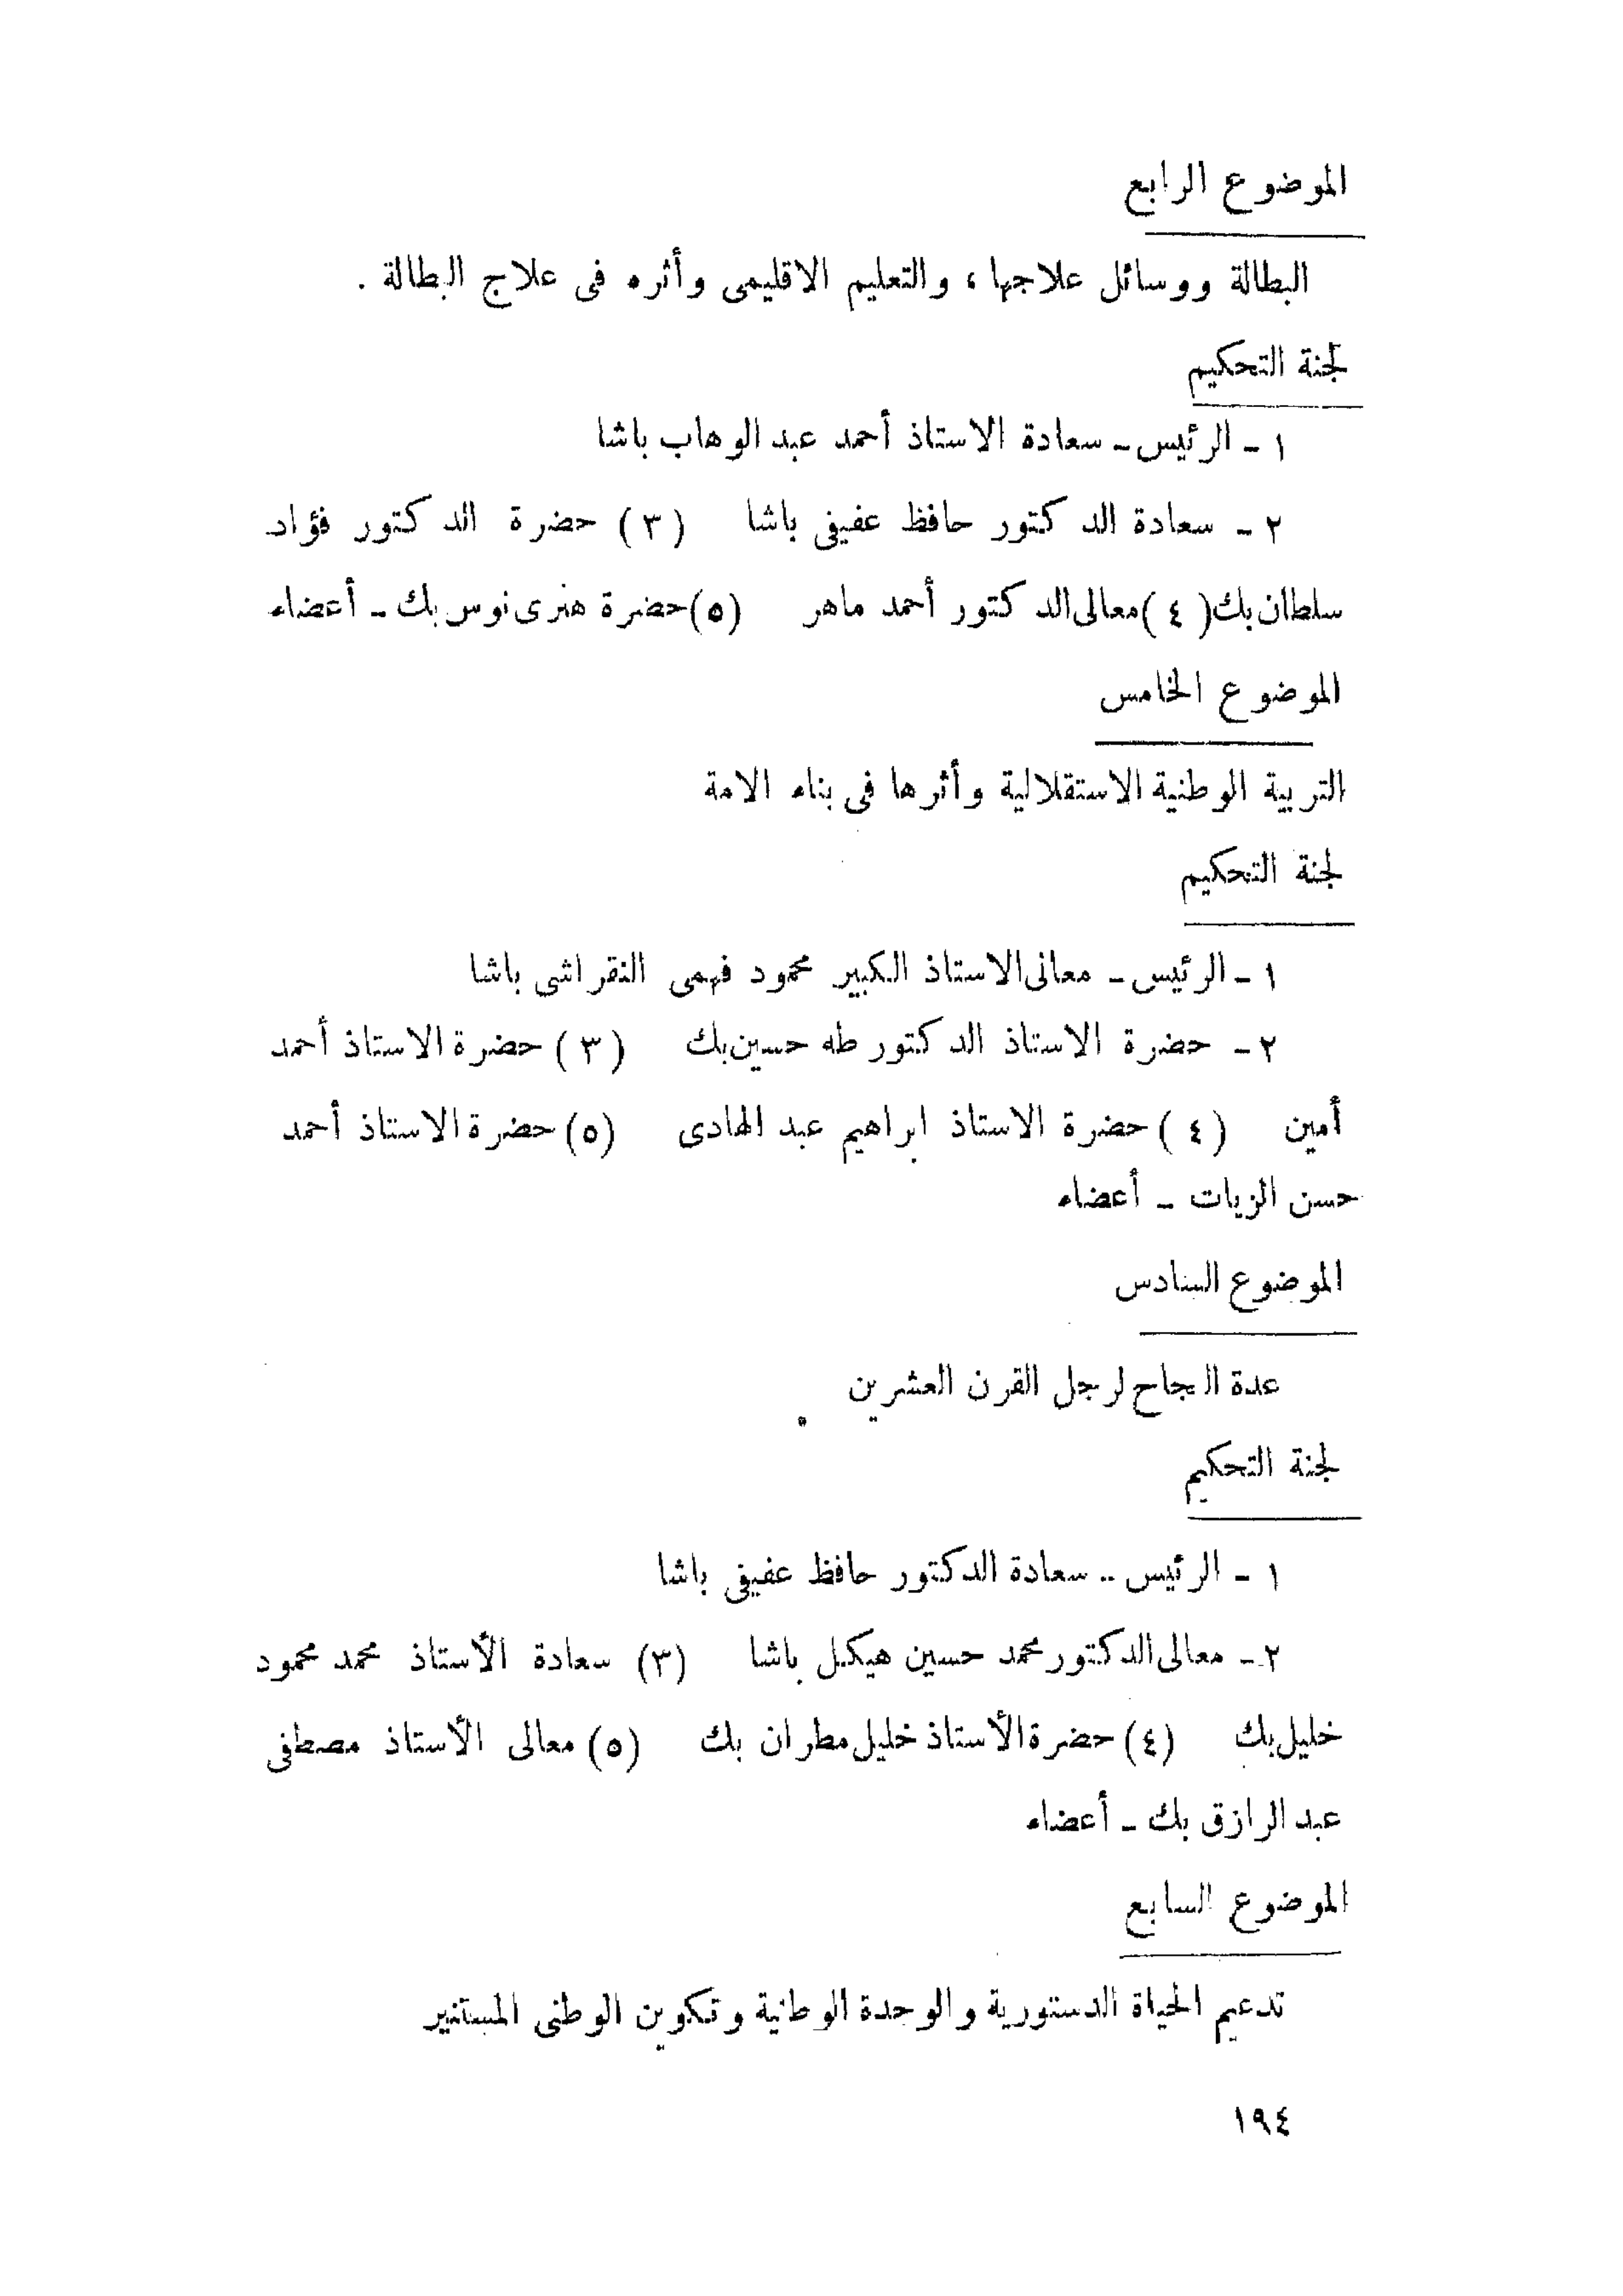 الموضوع الرابع
البطالة ووسائل علاجها ، والتعليم الاقليمى وأثره فى علاج البطالة .
لجنة التحكيم
١ - الرئيس - سعادة الاستاذ أحمد عبد الوهاب باشا
٢ - سعادة الدكتور حافظ عفيفى باشا (٣) حضرة الدكتور فؤاد
سلطان بك (٤) معالى الدكتور أحمد ماهر (٥) حضرة هنرى نوس بك - أعضاء
الموضوع الخامس
التربية الوطنية الاستقلالية وأثرها فى بناء الامة
لجنة التحكيم
١ - الرئيس - معالى الاستاذ الكبير محمود فهمى النقراشى باشا
٢ - حضرة الاستاذ الدكتور طه حسين بك (٣) حضرة الاستاذ أحمد
أمين (٤) حضرة الاستاذ ابراهيم عبد الهادى (٥) حضرة الاستاذ أحمد
حسن الزيات - أعضاء
الموضوع السادس
عدة النجاح لرجل القرن العشرين
لجنة التحكيم
١ - الرئيس .. سعادة الدكتور حافظ عفيفى باشا
٢ - معالى الدكتور محمد حسين هيكل باشا (٣) سعادة الأستاذ محمد محمود
خليل بك (٤) حضرة الأستاذ خليل مطران بك (٥) معالى الأستاذ مصطفى
عبد الرازق بك - أعضاء
الموضوع السابع
تدعيم الحياة الدستورية والوحدة الوطنية وتكوين الوطنى المستنير
١٩٤